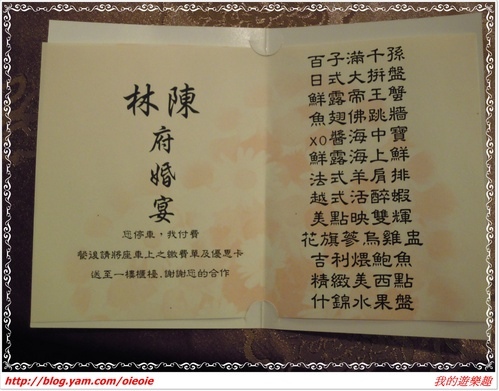 林陳
府
婚
宴
您停車，我付費
餐後請將座車上之繳費單及優惠卡
送至一樓櫃檯，謝謝您的合作
百子滿千孫
日式大拼盤
鮮露帝王蟹
魚翅佛跳牆
XO醬海中寶
鮮露海上鮮
法式羊肩排
越式活醉蝦
美點映雙輝
花旗蔘烏雞盅
吉利煨鮑魚
精緻美西點
什錦水果盤
http://blog.yam.com/oieoie
我的遊樂趣